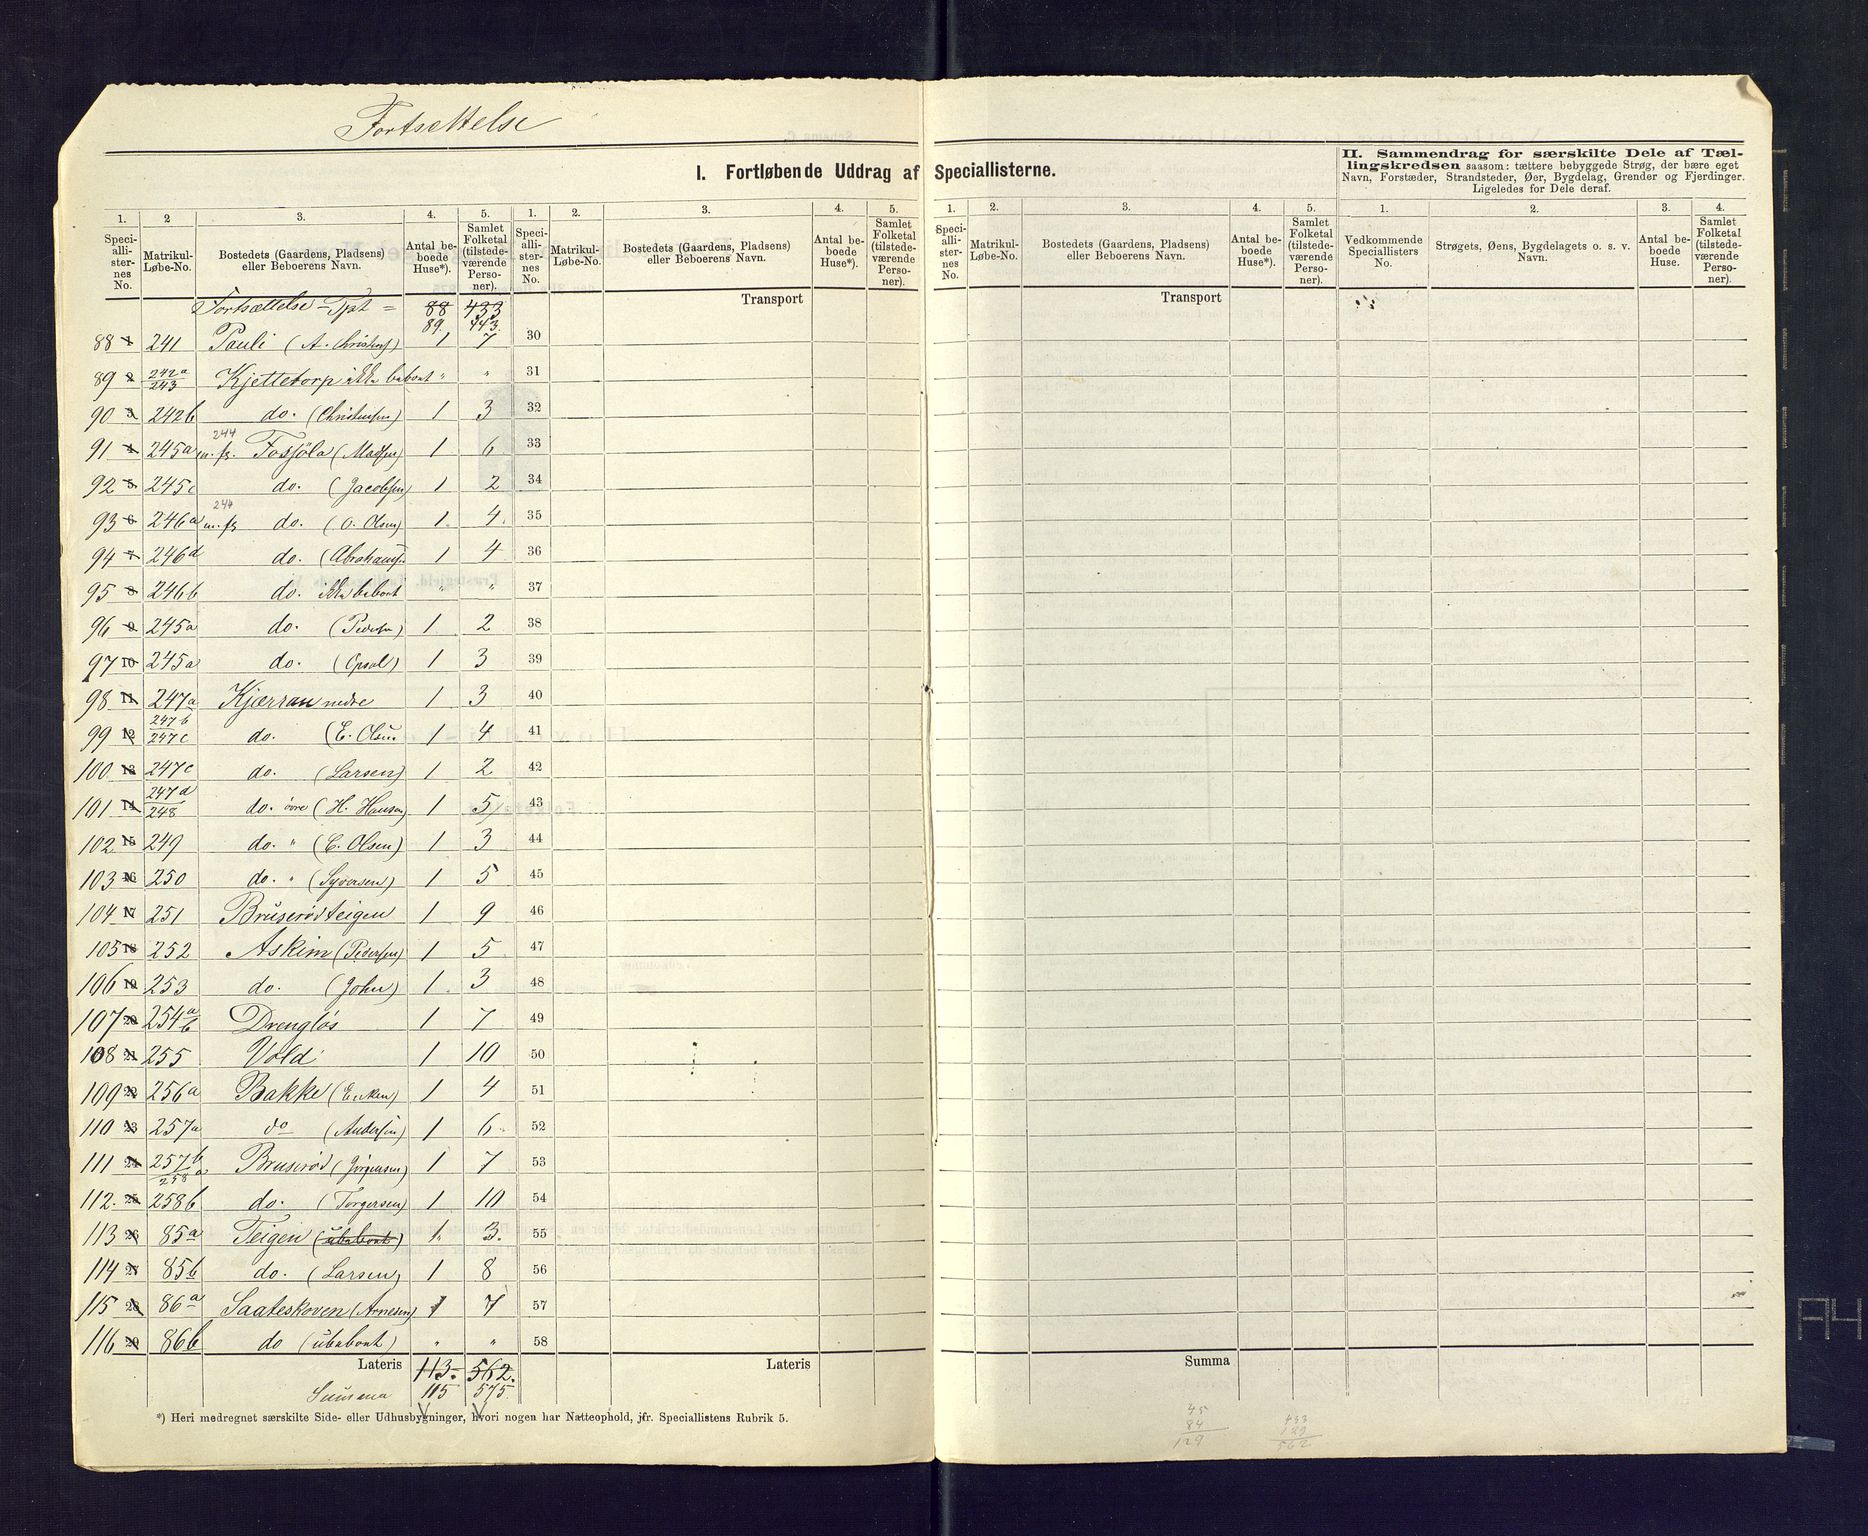 Fortsættelse
I. Fortløbende Uddrag af Speciallisterne.
II. Sammendrag for særskilte Dele af Tæl-
lingskredsen saasom: tættere bebyggede Strøg, der bære eget
Navn, Forstæder, Strandsteder, Øer, Bygdelag, Grender og Fjerdinger.
Ligeledes for Dele deraf.
1. 2 3. 4. 5. 1. 2. 3. 4. 5. 1. 2. 3. 4. 5. 1. 2. 3. 4.
Speci-alli-ster-nes No. Matrikul-Løbe-No. Bostedets (Gaardens, Pladsens) eller Beboerens Navn. Antal be-boede Huse*). Samlet Folketal (tilstede-værende Perso-ner).
Speci-alli-ster-nes No. Matrikul-Løbe-No. Bostedets (Gaardens, Pladsens) eller Beboerens Navn. Antal be-boede Huse*). Samlet Folketal (tilstede-værende Perso-ner).
Speci-alli-ster-nes No. Matrikul-Løbe-No. Bostedets (Gaardens, Pladsens) eller Beboerens Navn. Antal be-boede Huse*). Samlet Folketal (tilstede-værende Perso-ner).
Vedkommende Speciallisters No. Strøgets, Øens, Bygdelagets o. s. v. Navn. Antal be-boede Huse. Samlet Folketal (tilstede-værende Perso-ner).
Fortsættelse - Tpt = 88 433 Transport Transport
89. 443.
88 1 241 Pauli (A. Christens) 1 7 30
89 2 242a/243 Kjettetorp ikke beboet " " 31
90 3 242b do. (Christensen) 1 3 32
91 4 245a m. fr. 244 Fosjöla (Madsen) 1 6 33
92 5 245c do. (Jacobsen) 1 2 34
93 6 246a m. fr. 244 do. (O. Olsen) 1. 4. 35
94 7 246d do. (Abrahams) 1 4 36
95 8 246b do. ikke beboet " " 37
96 9 245a do. (Peders) 1 2 38
97 10 245a do. (Opsal) 1 3 39
98 11 247a Kjærran nedre 1 3 40
99 12 247b/247c do. (E. Olsen 1 4 41
100 13 247c do. (Larsen) 1 2 42
101 14 247d/248 do. övre (H. Hansen) 1 5 43
102 15 249 do. " (C. Olsen) 1 3 44
103 16 250 do. " (Syversen) 1 5 45
104 17 251 Bruserödteigen 1 9 46
105 18 252 Askim (Pedersen) 1 5 47
106 19 253 do. (John) 1. 3 48
107 20 254a/b Drenglös 1 7 49
108 21 255 Vold 1 10 50
109 22 256a Bakke (Eriksen) 1 4 51
110 23 257a do (Andersen) 1 6 52
111 24 257b/258a Bruseröd (Jörgensen) 1 7 53
112. 25 258b do. (Torgersen) 1 10 54
113 26 85a Teigen (ubeboet) 1. 3. 55
114 27 85b do. (Larsen) 1 8 56
115 28 86a Saateskoven (Arnesen) 1 7 57
116 29 86b do (ubeboet) " " 58
Lateris 113. 562. Lateris Summa
Summa 115 575.
*) Heri medregnet særskilte Side- eller Udhusbygninger, hvori nogen har Natteophold, jfr. Speciallistens Rubrik 5.
45 433
84 129
129 562
A4